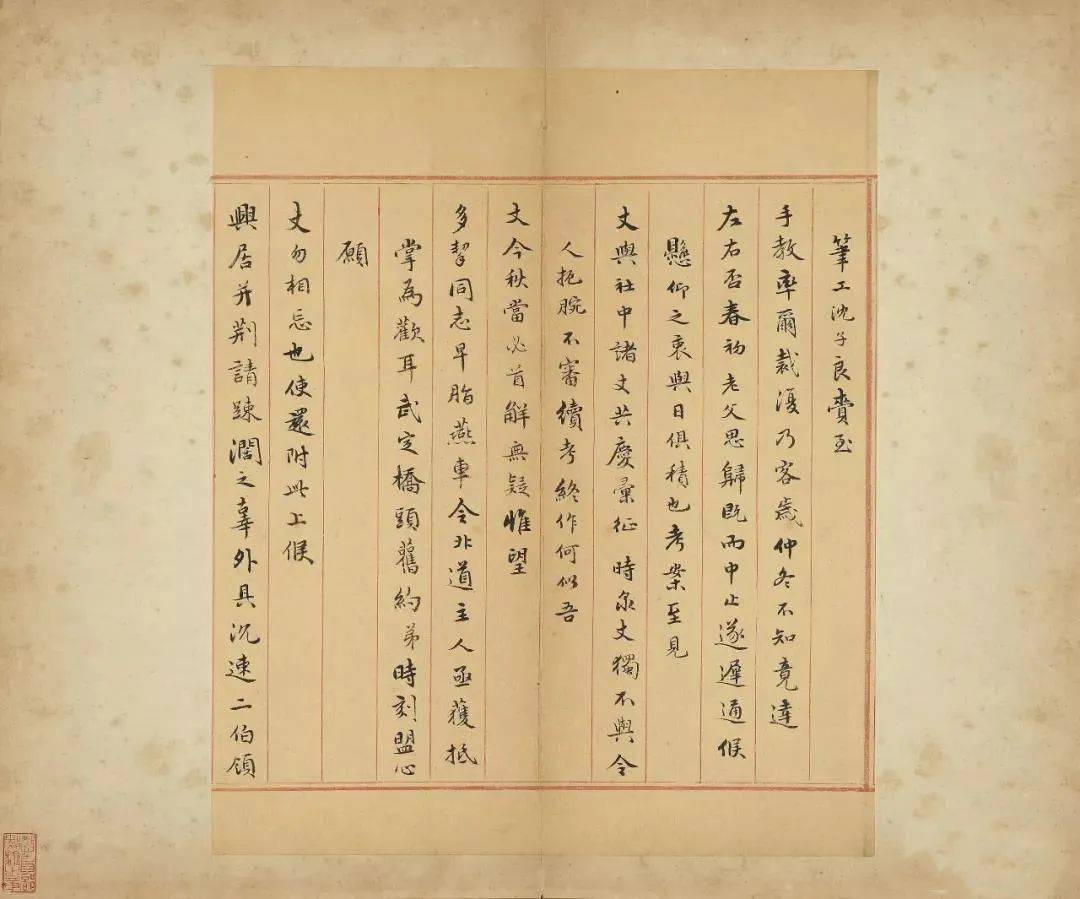 筆工沈子良賫至
手教率爾裁復乃客歲仲冬不知竟達
左右否春初老父思歸既而中止遂遲通候
懸仰之衷與日俱積也考案至見
丈與社中諸丈共慶彙征時泉丈獨不與令
人扼腕不審續考終作何似吾
丈今秋當必首解無疑惟望
多挈同志早脂燕車令北道主人亟獲抵
掌為歡耳武定橋頭舊約弟時刻盟心
願
丈勿相忘也使還附此上候
興居并荊請踈濶之辜外具沉速二伯領